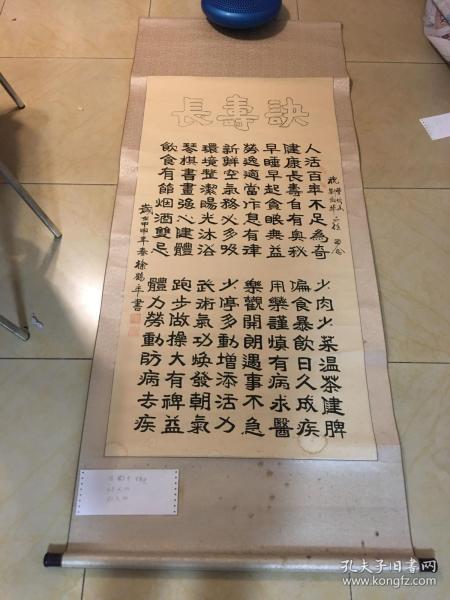 長壽訣
人活百年不足為奇
健康長壽自有奥秘
早睡早起貪眠無益
勞逸適當作息有律
新鮮空氣務必多吸
環境整潔陽光沐浴
琴棋書畫強心健體
飲食有節烟酒雙忌
少肉少菜温茶健脾
偏食暴飲日久成疾
用藥謹慎有病求醫
樂觀開朗遇事不急
少停多動增添活力
武術氣功焕發朝氣
跑步做操大有裨益
體力勞動防病去疾
歲甲申年春徐年書
孔夫子旧书网
www.kongfz.com